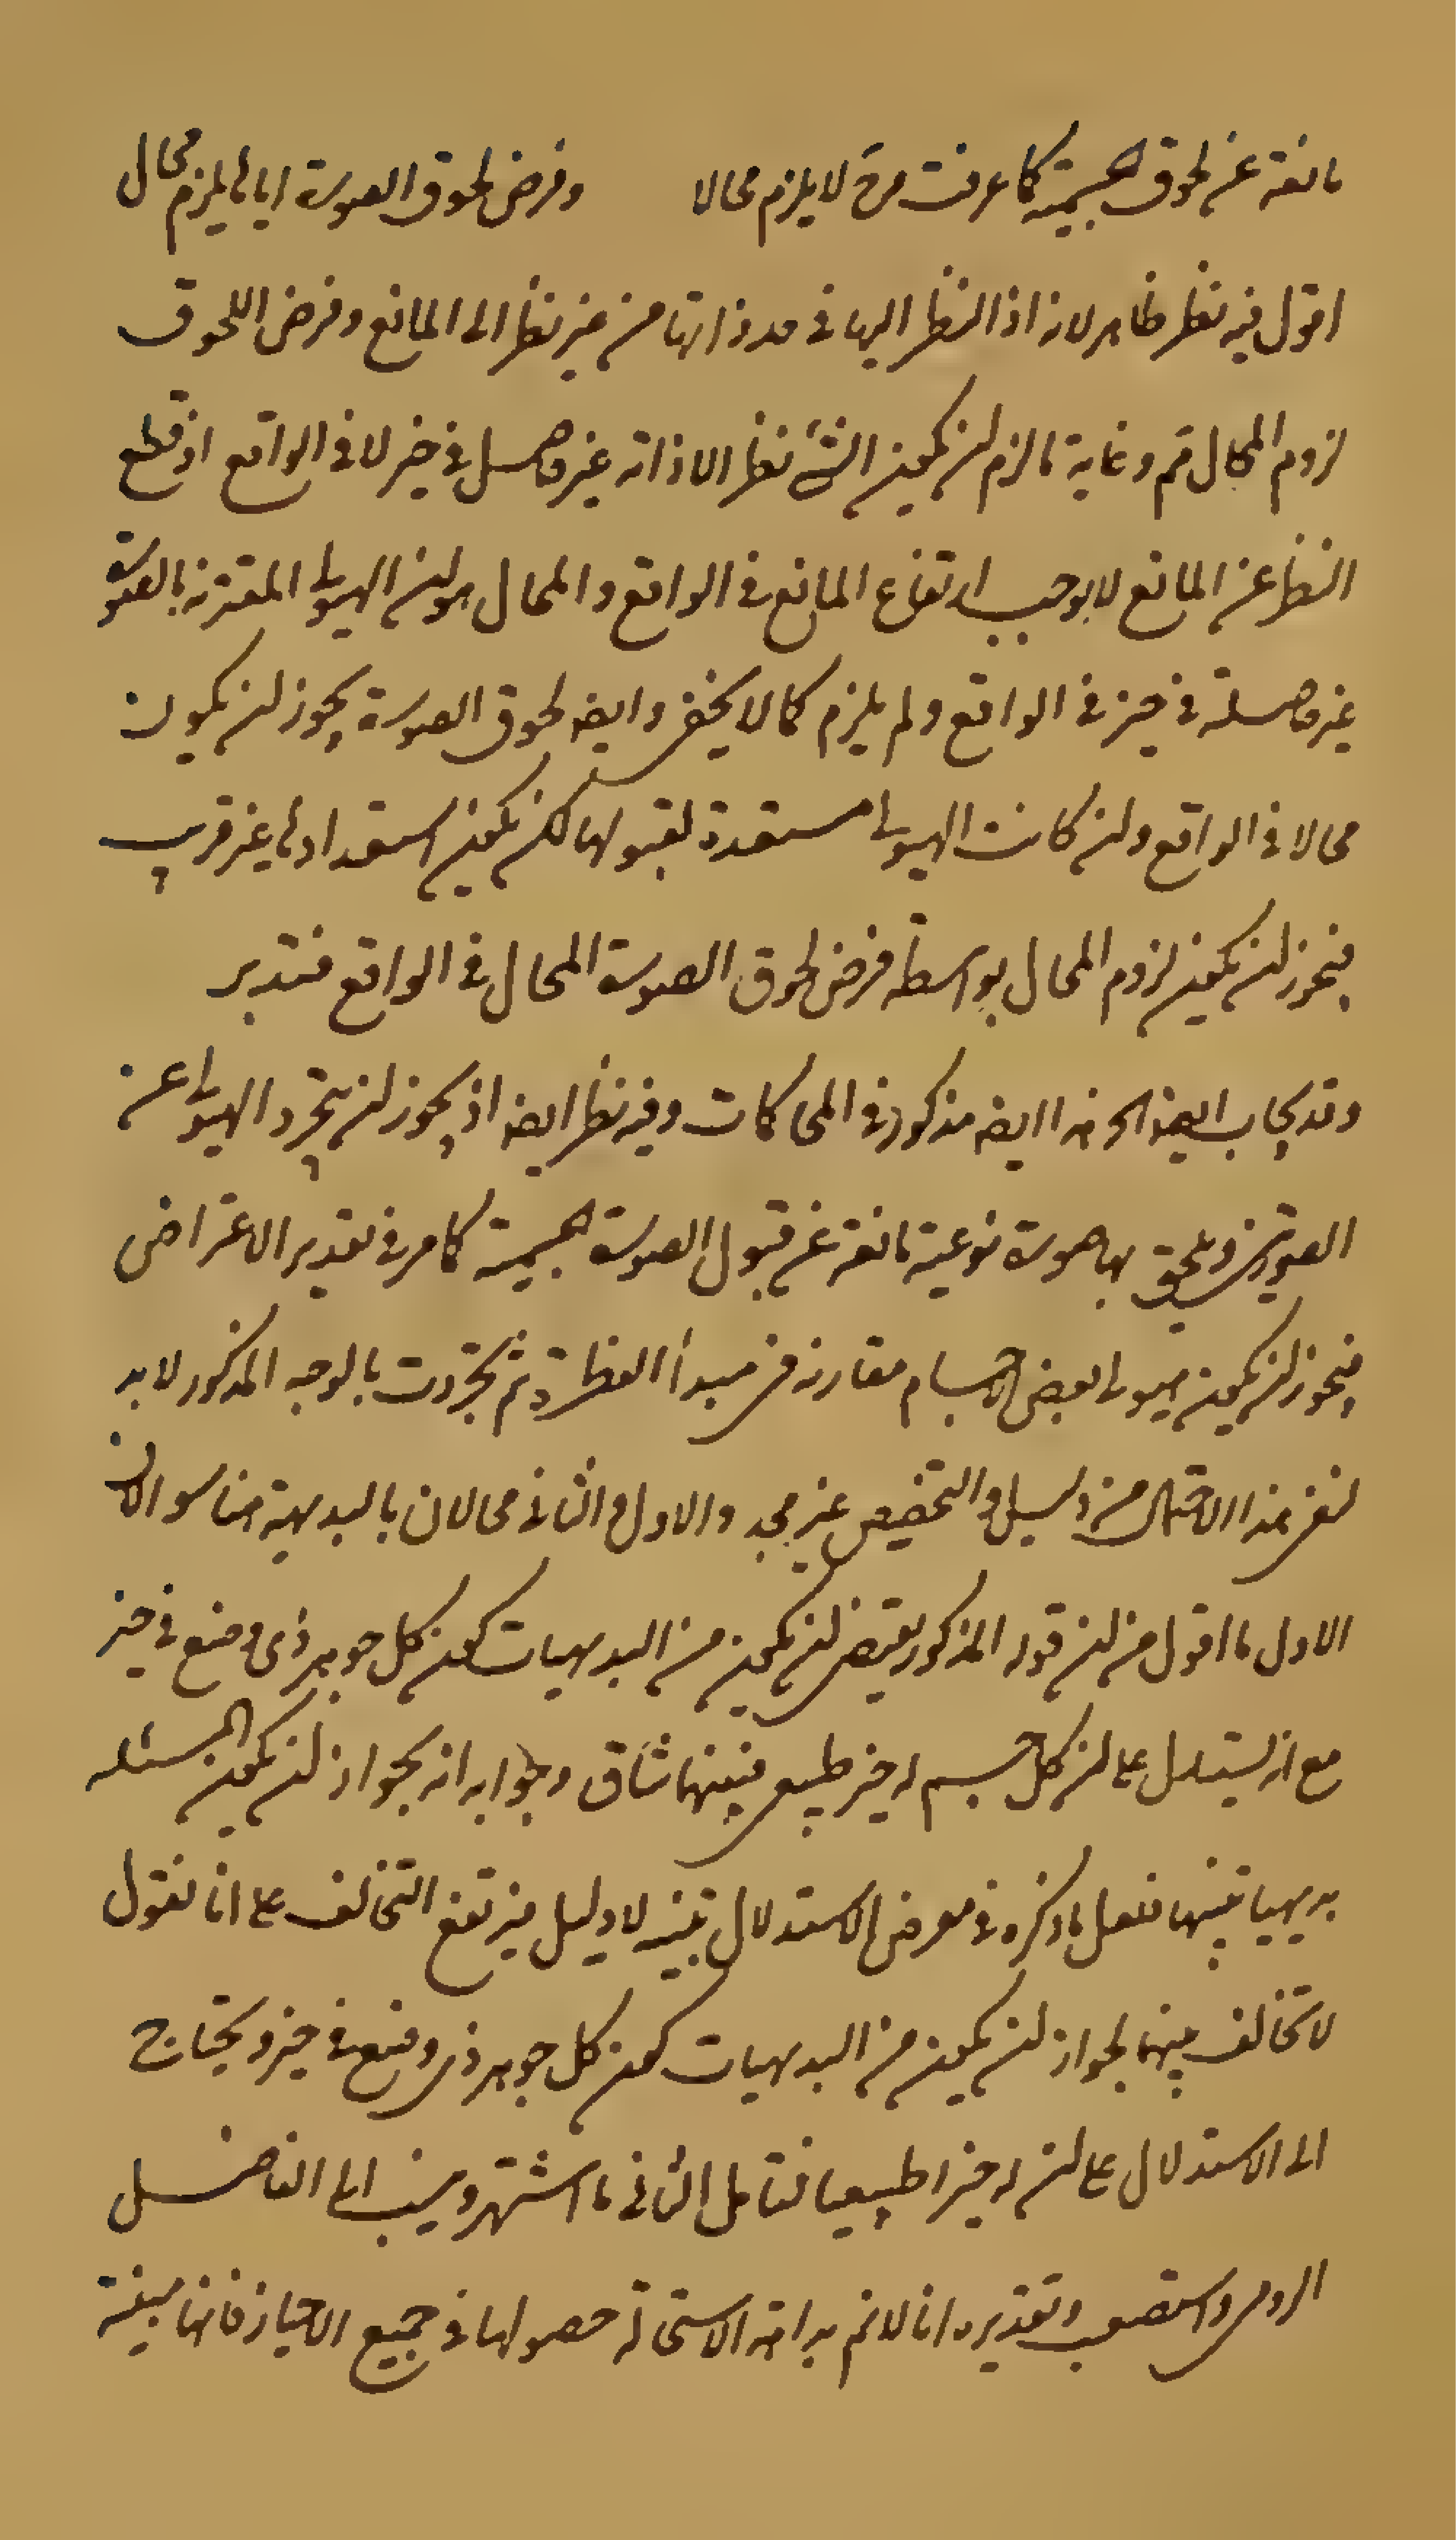 مانعة عن لحوق الجسمية كما عرفت مرة لا يلزم محالا وفرض لحوق الصورة اياها يلزم محال
اقول فيه نظر ظاهر لانه اذا النظر اليها في حد ذاتها من غير نظر الى المانع وفرض اللحوق
لزوم المحال تم وغاية ما لزم ان يكون الشئ نظرا الا ذاته غير حاصل في حيز لا في الواقع اذ قطع
النظر عن المانع لا يوجب ارتفاع المانع في الواقع والمحال هو ان الهيولى المقترنة بالصورة
غير حاصلة في حيز في الواقع ولم يلزم كما لا يخفى وايضه لحوق الصورة يجوز ان يكون
محالا في الواقع وان كانت الهيولى مستعدة لقبولها لكن يكون استعدادها غير قريب
فيجوز ان يكون لزوم المحال بواسطة فرض لحوق الصورة المحال في الواقع فتدبر
وقد يجاب ايضه الخ هذا ايضه مذكور في المحاكات وفيه نظر ايضه اذ يجوز ان يتجرد الهيولى عن
الصورتين ويلحق بها صورة نوعية مانعة عن قبول الصورة الجسمية كما مر في تقدير الاعتراض
فيجوز ان يكون هيولى بعض الاجسام مقارنة في مبدأ الفطرة ثم تجردت بالوجه المذكور لا بد
لنفي هذا الاحتمال من دليل والتخصيص غير مجد والاول والثاني محالان بالبديهة هنا سوالان
الاول ما اقول من ان قوله المذكور يقتضي ان يكون من البديهيات كون كل جوهر ذى وضع في حيز
مع انه يستدل على ان كل جسم له حيز طبيعي فبينهما تناف وجوابه انه يجوز ان يكون المسئله
بديهيا فبينهما فلعل ما ذكره في معرض الاستدلال تنبيه لا دليل فيرتفع التخالف على انا نقول
لا تخالف بينهما لجواز ان يكون من البديهيات كون كل جوهر ذي وضع في حيز ويحتاج
الى الاستدلال على ان له حيزا طبيعيا فتامل الثاني ما اشتهر وينسب الى الفاضل
الرومى واستصعب وتقديره انا لا نم بداهة الاستحالة حصولها في جميع الاحياز فانها مبينة